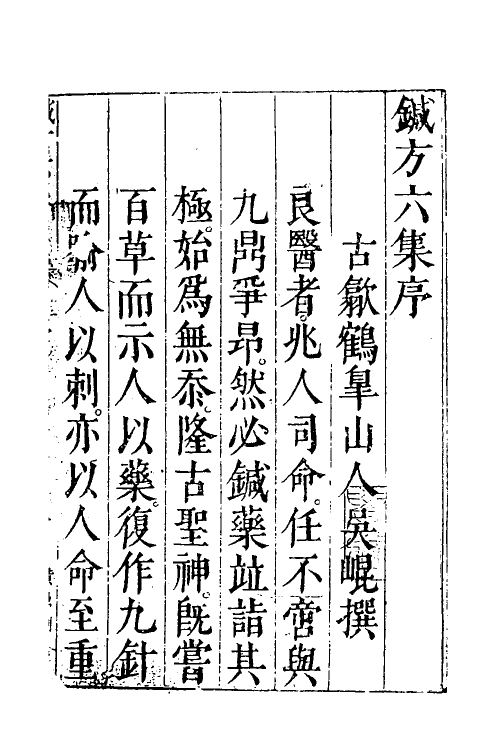 鍼方六集序
古歙鶴臯山人吳崐撰
良醫者。兆人司命。任不啻與
九鼎爭昂。然必鍼藥竝詣其
極。始爲無忝。隆古聖神。既嘗
百草而示人以藥。復作九針
而喻人以刺。亦以人命至重